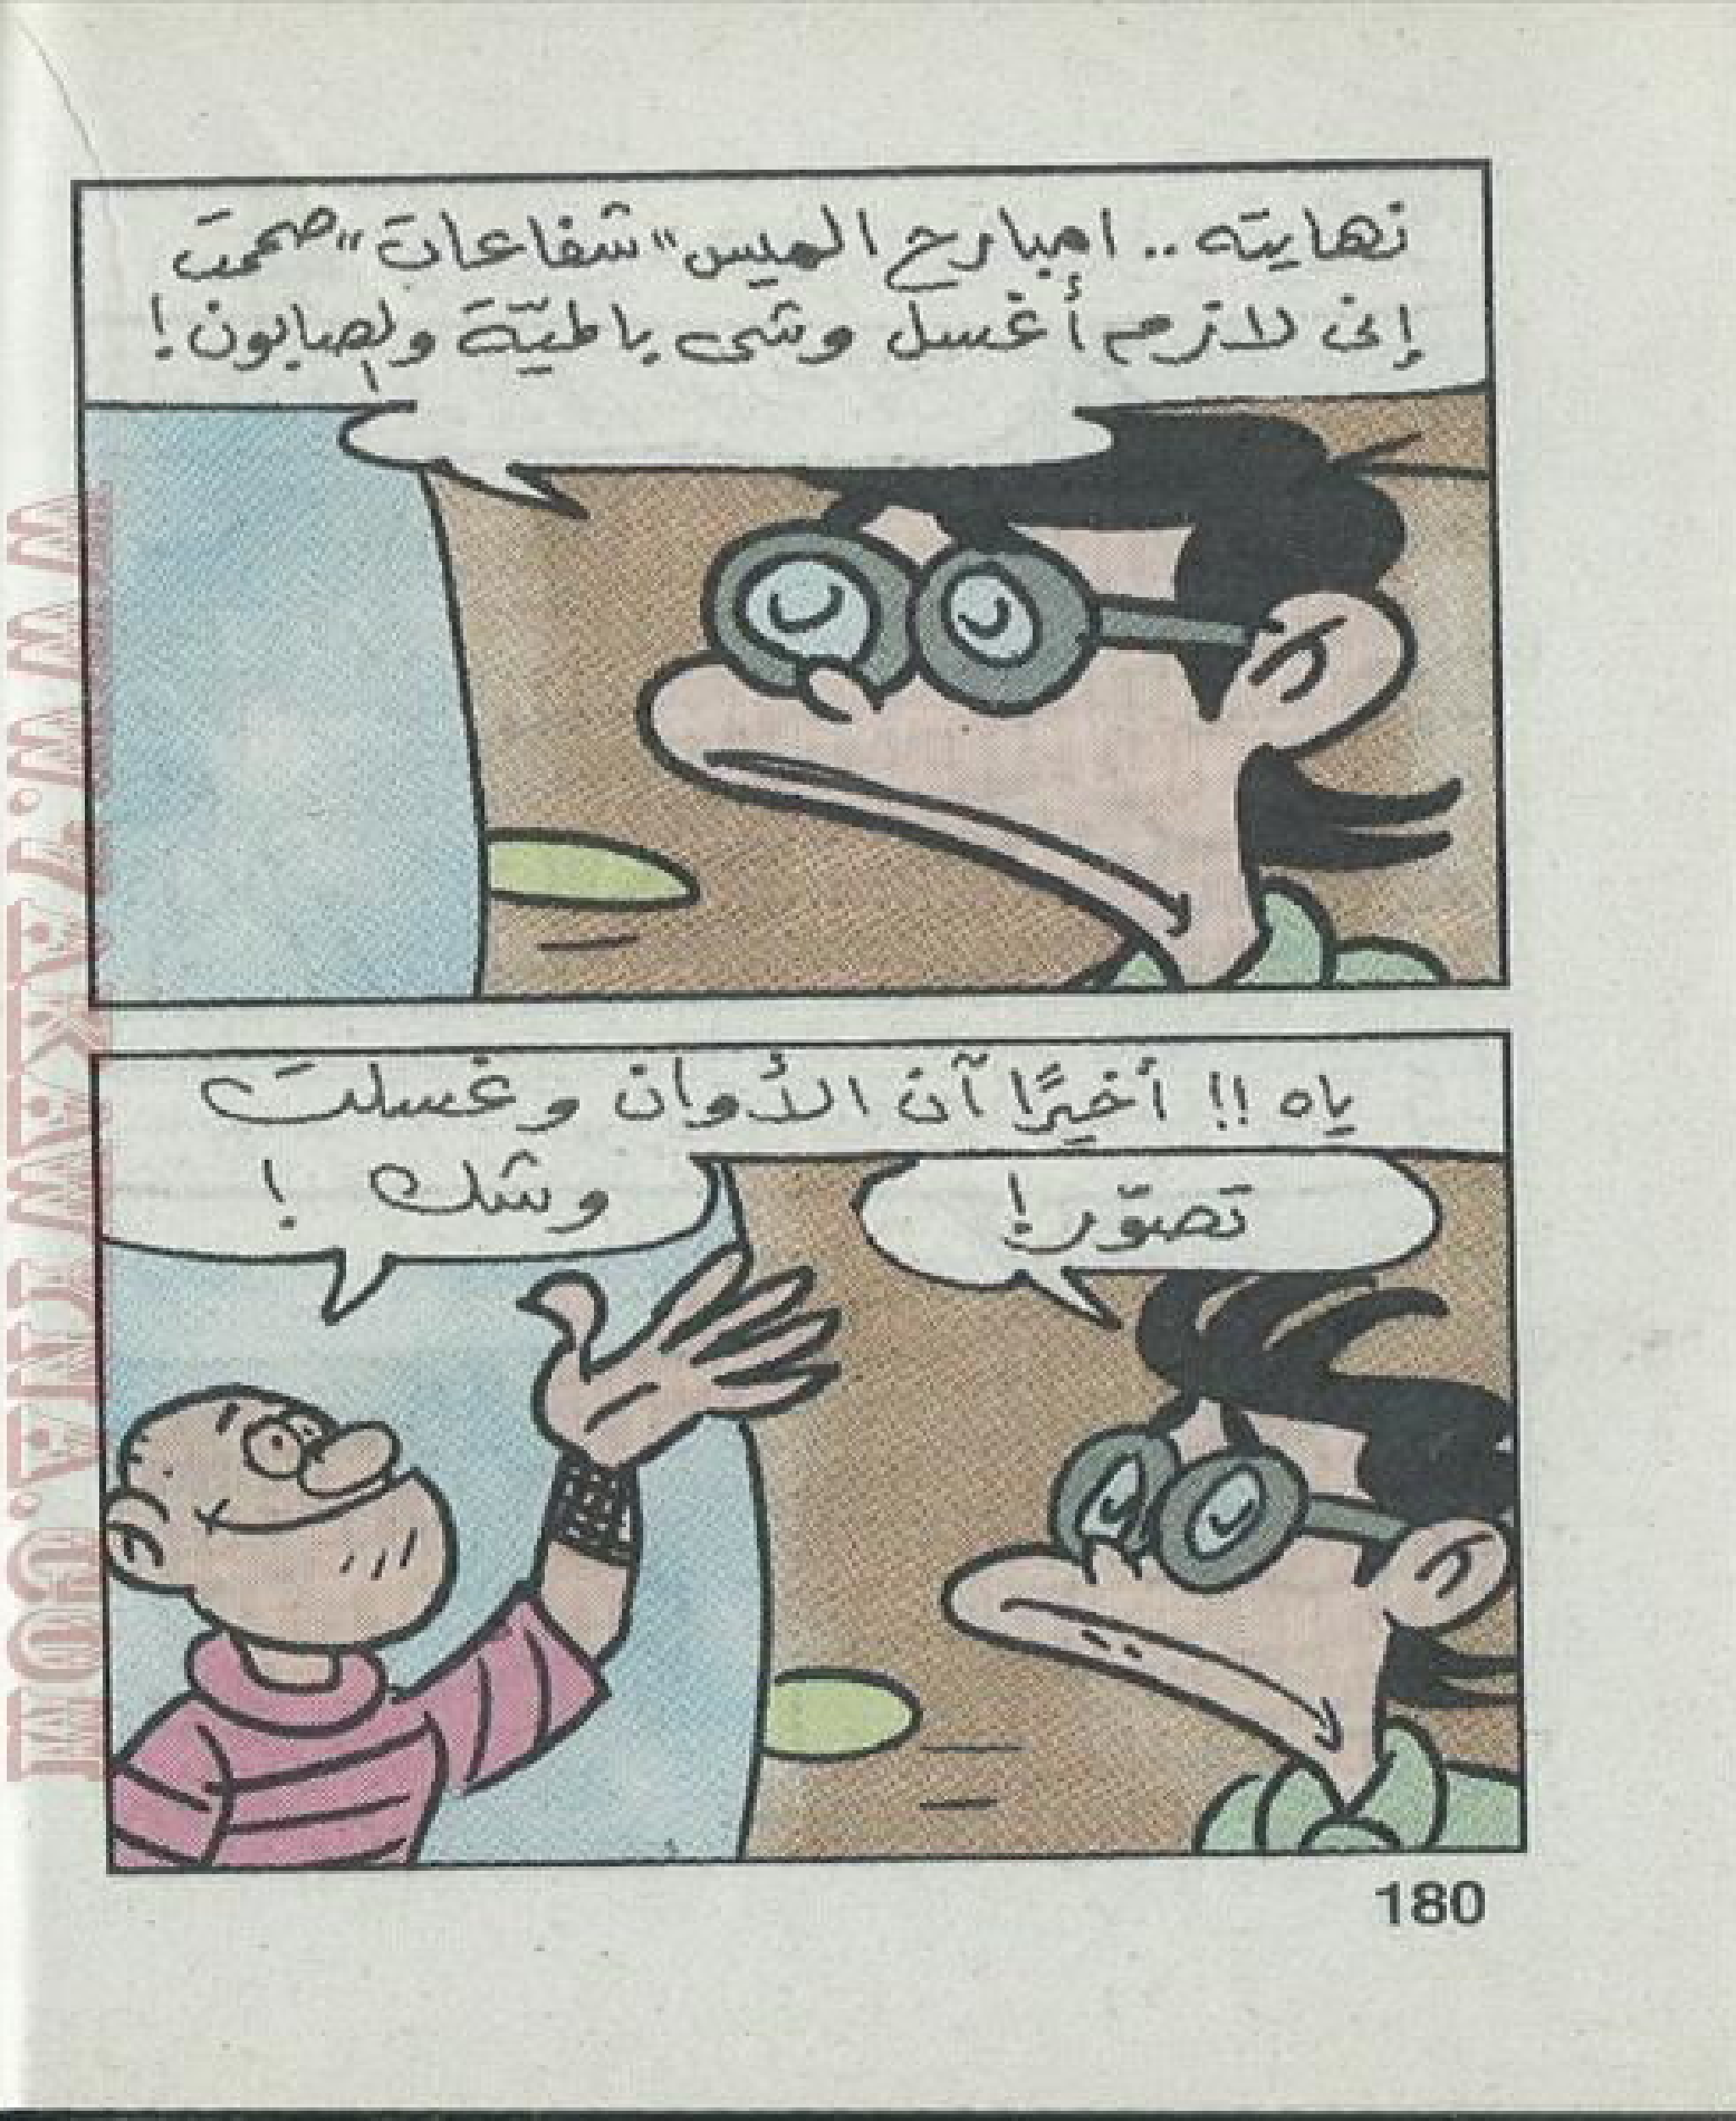 نهايته .. امبارح الميس "شفاعات" صممت
إنى لازم أغسل وشى بالميّة والصابون !
ياه !! أخيرًا آن الأوان وغسلت
وشك !
تصوّر !
180
WWW.7AKAWINA.COM